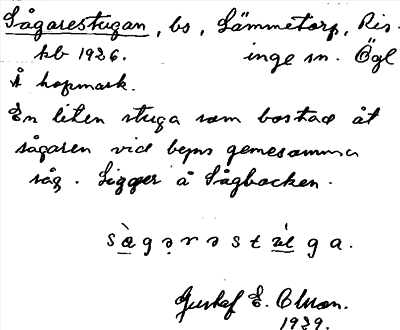 Sågarestugan, bs, Lämmetorp, Ris-
kb 1926. inge sn. Ögl
Å hopmark.
En liten stuga som bostad åt
sågaren vid byns gemesamma
såg. Ligger å Sågbacken.
sàgərəst ga.
Gustaf E. Olsson.
1929.